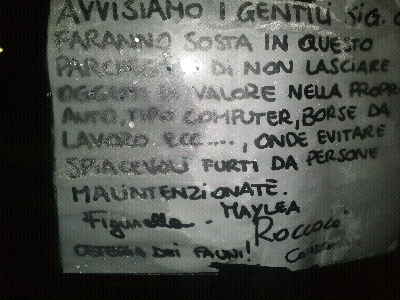 AVVISIAMO I GENTILI SIG.
FARANNO SOSTA IN QUESTO
PARCHEGGIO DI NON LASCIARE
OGGETTI DI VALORE NELLA PROPR
AUTO, TIPO COMPUTER, BORSE DA
LAVORO ECC...., ONDE EVITARE
SPIACEVOLI FURTI DA PERSONE
MALINTENZIONATE.
Figurella - MAYLEA
OSTERIA DEI FAUNI! ROCCOCO'